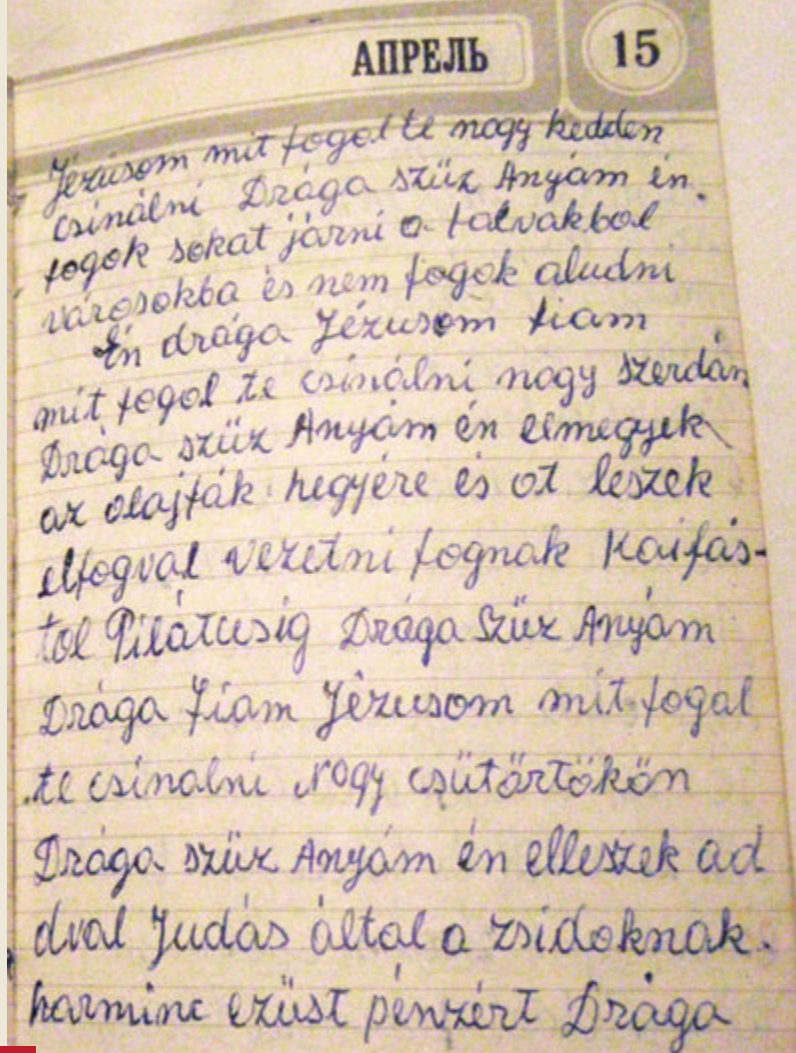 АПРЕЛЬ 15
Jézusom mit fogol te nogy kedden
csinálni Drága szüz Anyám én.
fogok sokat járni a falvakbol
városokba és nem fogok aludni
Én drága Jézusom fiam
mit fogol te csinálni nogy szerdán
Drága szüz Anyám én elmegyek
az olajfák hegyére és ot leszek
elfogval vezetni fognak Kaifás-
tol Pilátusig Drága Szüz Anyám
Drága fiam Jézusom mit fogal
te csinalni Nogy csütörtökön
Drága szüz Anyám én elleszek ad
dval Judás által a zsidoknak.
harminc ezüst pénzért Drága